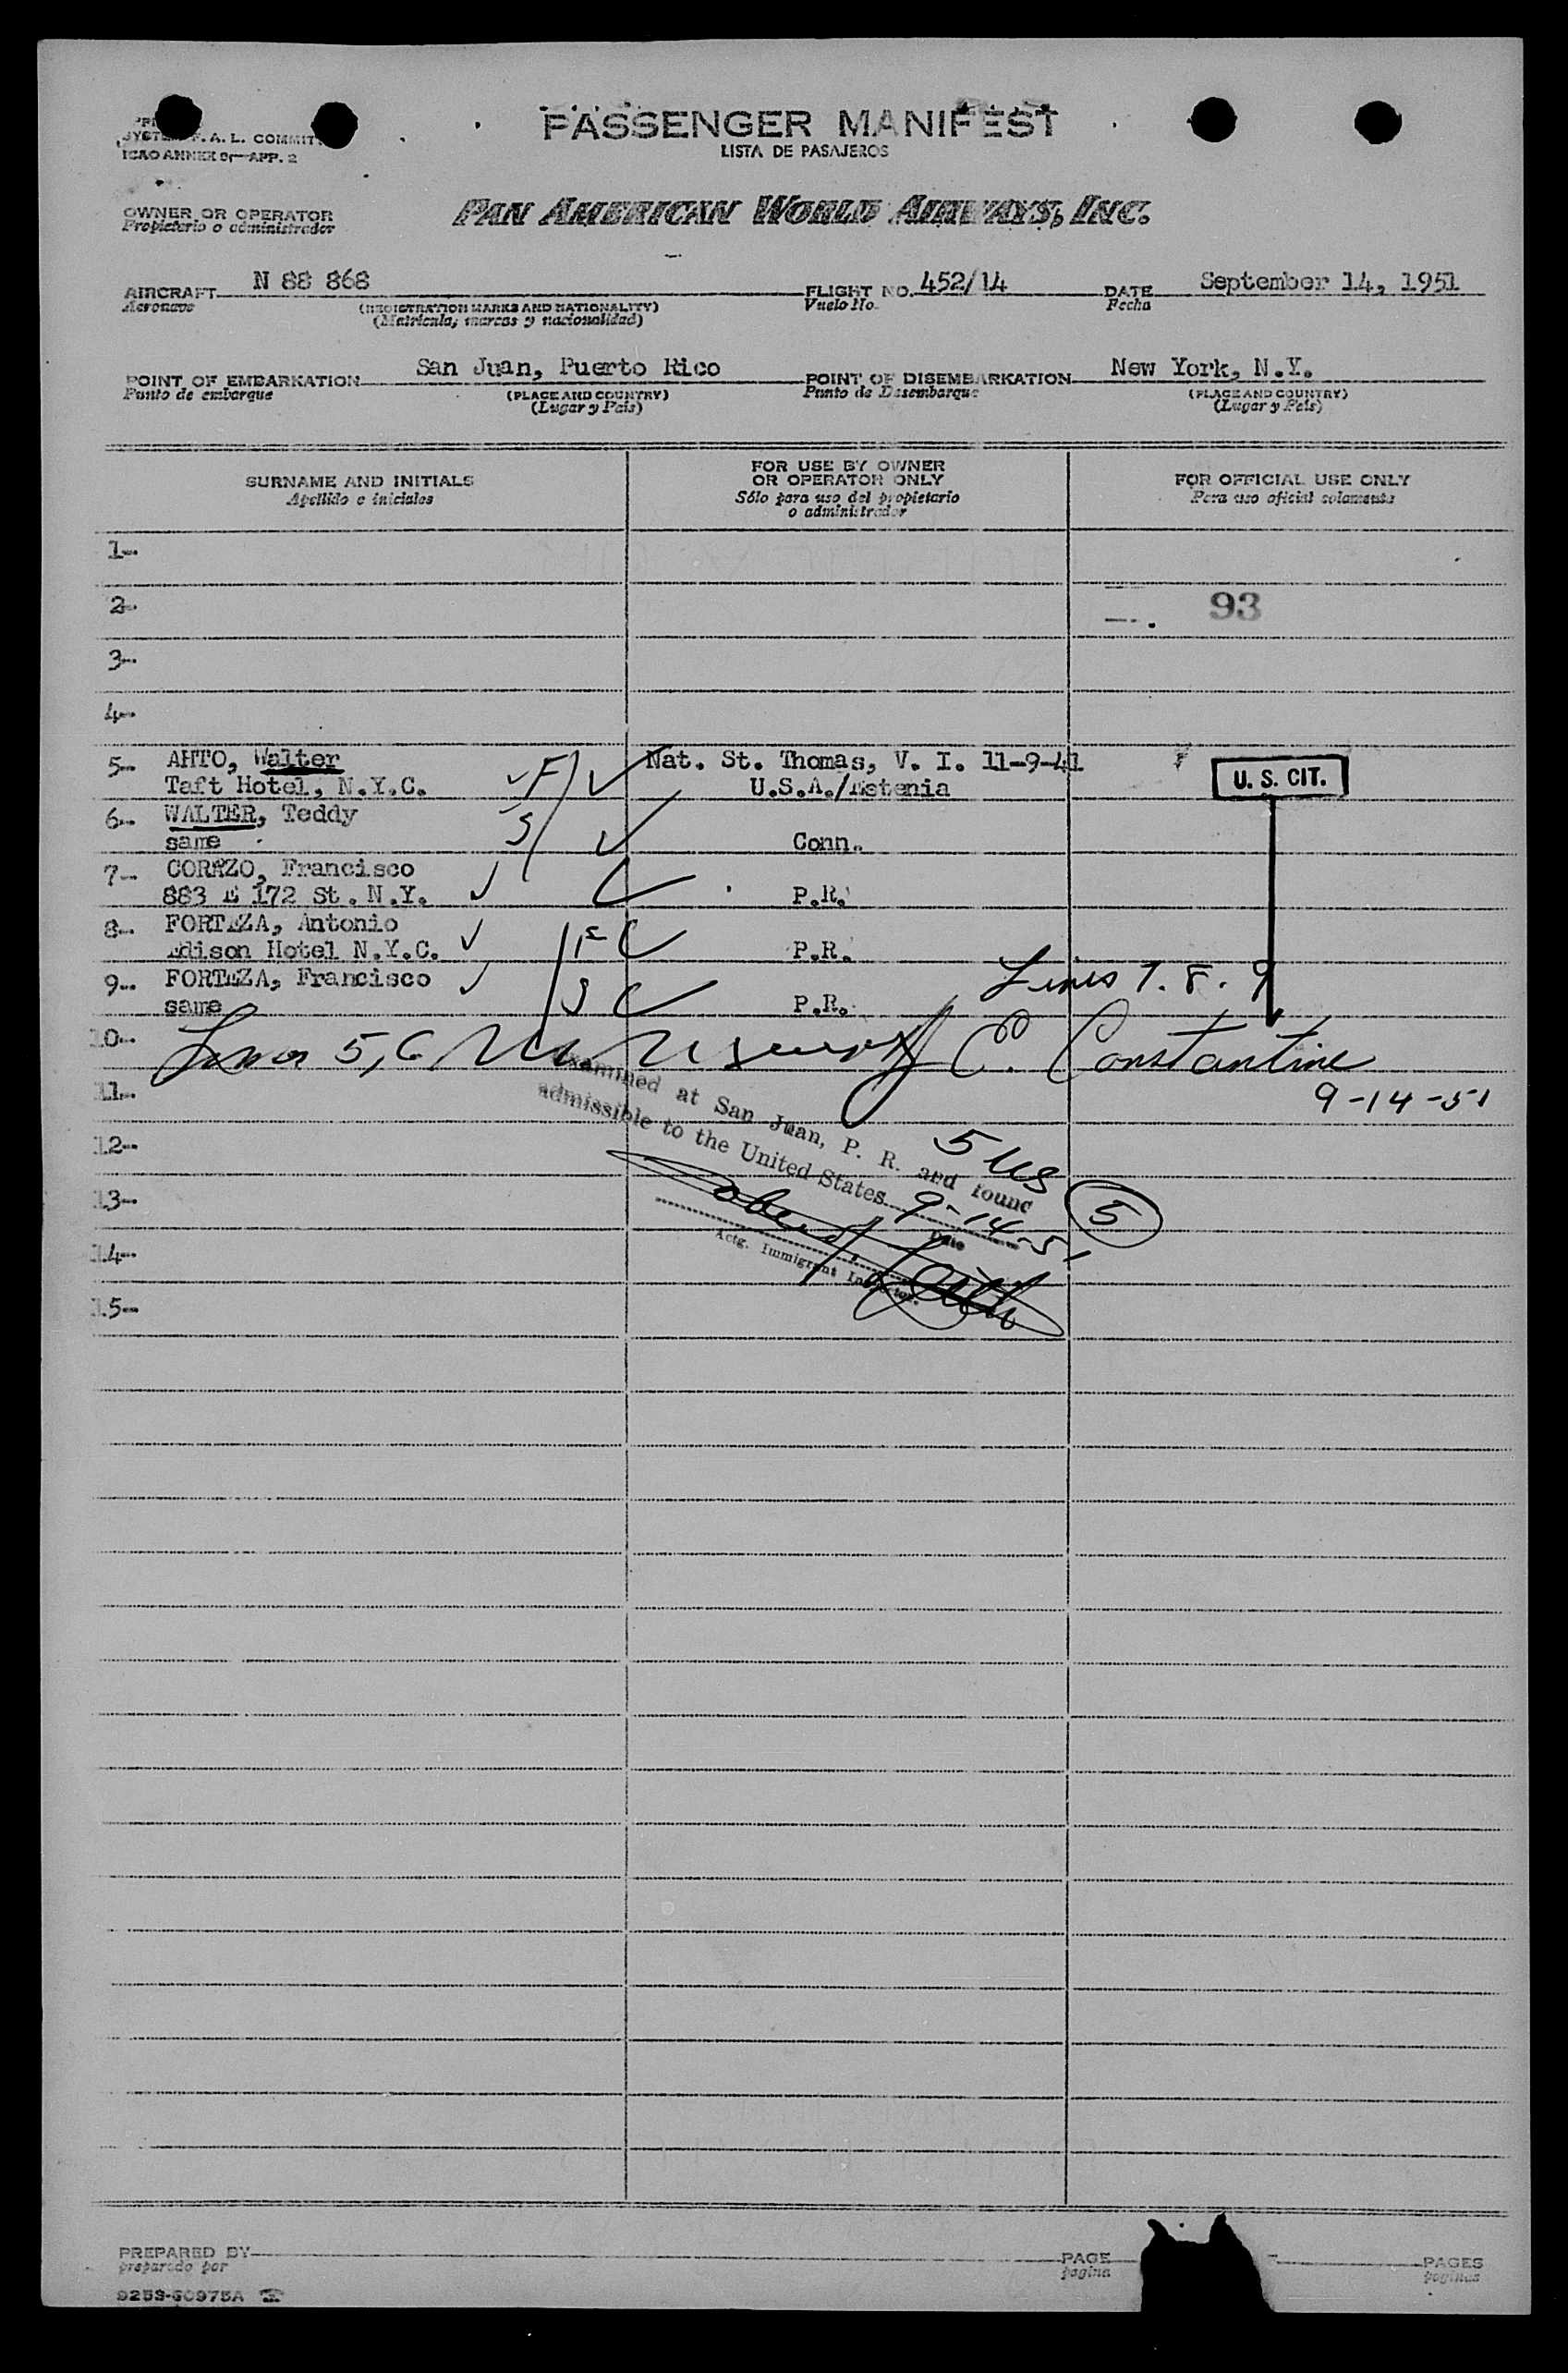 PASSENGER MANIFEST
LISTA DE PASAJEROS
F. A. L.
ICAO ANNEX 9—APP. 2
OWNER OR OPERATOR
Propietario o administrador
PAN AMERICAN WORLD AIRWAYS, INC.
AIRCRAFT N 88 868 FLIGHT NO. 452/14 DATE September 14, 1951
Aeronave (REGISTRATION MARKS AND NATIONALITY) Vuelo No. Fecha
(Matrícula, marcas y nacionalidad)
POINT OF EMBARKATION San Juan, Puerto Rico POINT OF DISEMBARKATION New York, N.Y.
Punto de embarque (PLACE AND COUNTRY) Punto de Desembarque (PLACE AND COUNTRY)
(Lugar y País) (Lugar y País)
SURNAME AND INITIALS FOR USE BY OWNER OR OPERATOR ONLY FOR OFFICIAL USE ONLY
Apellido e iniciales Sólo para uso del propietario o administrador Para uso oficial solamente
1--
2-- 93
3--
4--
5-- AHTO, Walter F Nat. St. Thomas, V. I. 11-9-41 U. S. CIT.
Taft Hotel, N.Y.C. U.S.A./Estonia
6-- WALTER, Teddy S
same Conn.
7-- CORAZO, Francisco
883 E 172 St. N.Y. P.R.
8-- FORTEZA, Antonio F
Edison Hotel N.Y.C. P.R.
9-- FORTEZA, Francisco S Lines 7. 8. 9
same P.R.
10-- Lines 5, 6 C. Constantine
11-- 9-14-51
Examined at San Juan, P. R. and found
admissible to the United States 9-14-51
5 US
Date
12--
13-- 5
Actg. Immigrant Inspector.
14--
15--
PREPARED BY PAGE PAGES
preparado por pagina paginas
9253-60975A